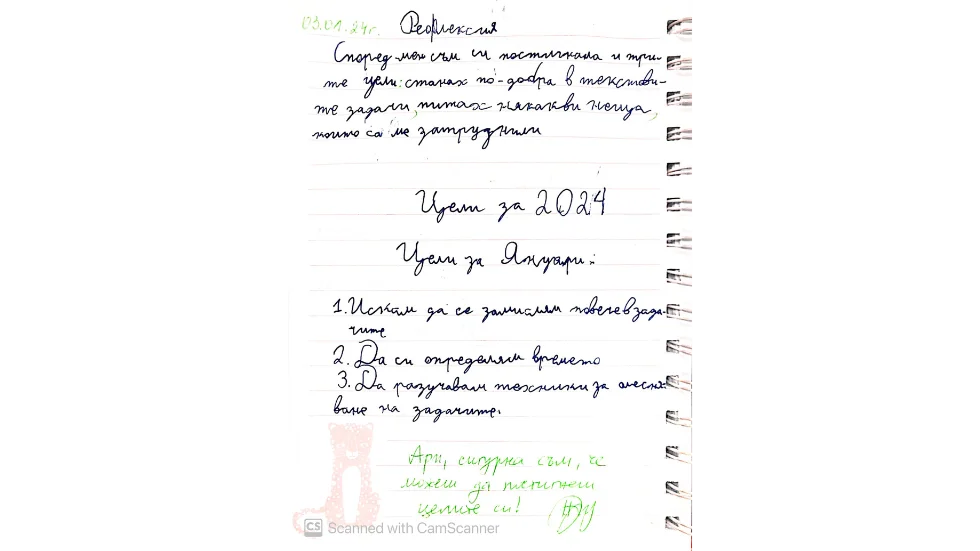 03.01.24г. Рефлексия
Според мен съм си постигнала и три-
те цели: станах по-добра в текстови-
те задачи, питах някакви неща,
които са ме затруднили
Цели за 2024
Цели за Януари:
1. Искам да се замислям повече в зада-
чите
2. Да си определям времето
3. Да разучавам техники за олесня-
ване на задачите.
Ари, сигурна съм, че
можеш да постигнеш
целите си!
CS Scanned with CamScanner